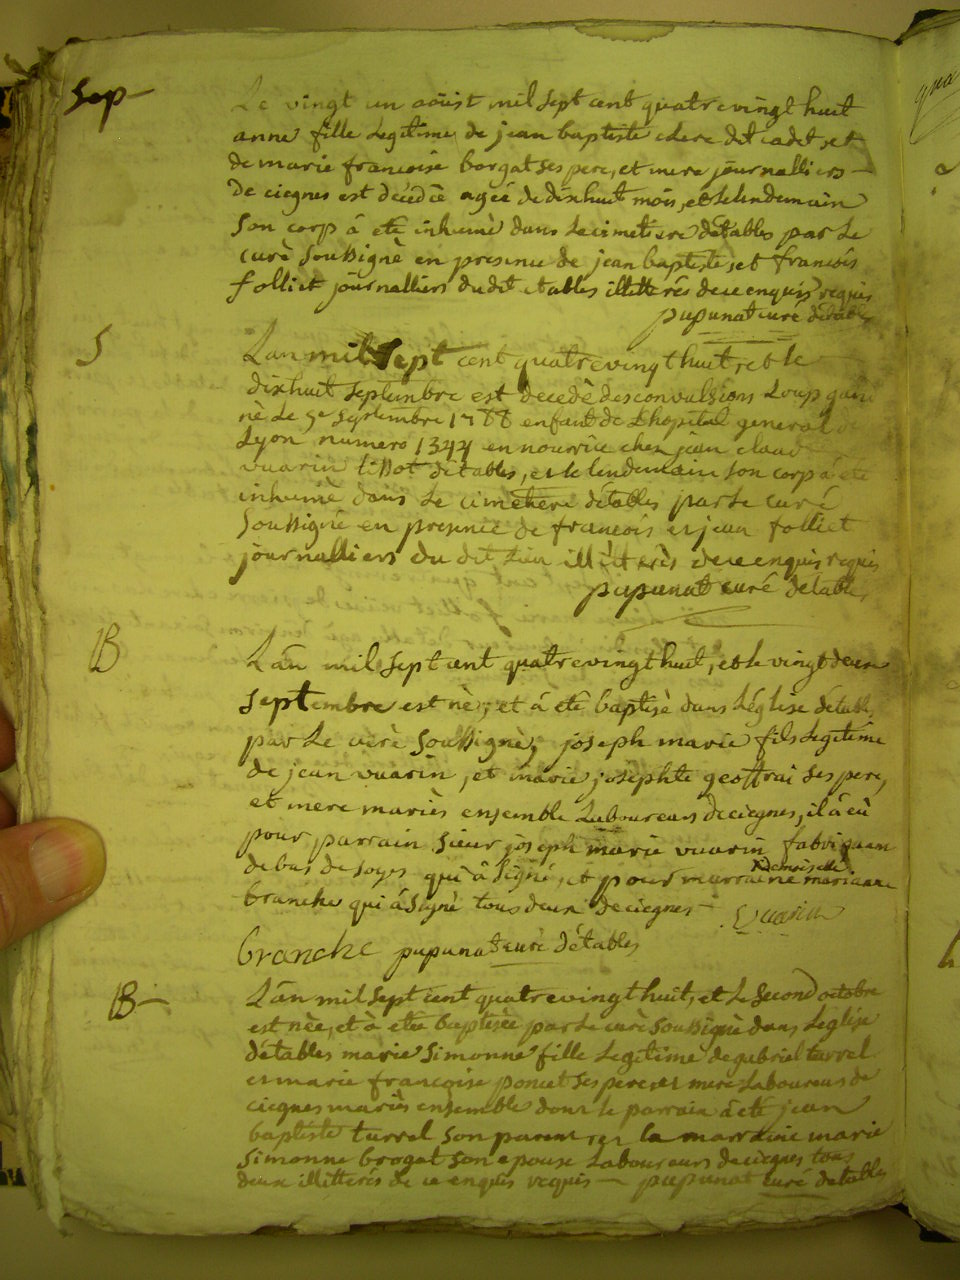 Sep
Le vingt un aoüst mil sept cent quatre vingt huit
anne fille Legitime de jean baptiste clere dit cadet, et
de marie francoise borgat ses pere, et mere journalliers
de ciegnes est décédée agée de dixhuit mois, et le lendemain
son corp á eté inhumé dans le cimetiere détables par Le
curé soussigné en presence de jean baptiste, et francois
folliet journalliers du dit etables illitterés de ce enquis requis
pupunat curé détables
S
Lan mil sept cent quatre vingt huit, et le
dixhuit septembre est decedé des convulsions Loup
né Le 5e septembre 1788 enfant de Lhopital general de
Lyon numero 1344 en nourrice chez jean claude
vuarin tissot détables, et le lendemain son corp á eté
inhumé dans Le cimetiere détables par Le curé
soussigné en presence de francois et jean folliet
journalliers du dit Lieu illitterés de ce enquis requis
pupunat curé detables
B
Lan mil sept cent quatre vingt huit, et le vingt deux
septembre est né, et á eté baptisé dans Léglise détables
par Le curé soussigné, joseph marie fils Legitime
de jean vuarin, et marie josephte geoffrai ses pere,
et mere mariés ensemble Laboureurs de ciegnes, il á eù
pour parrain sieur joseph marie vuarin fabriquan
de bas de soye qui á signé, et pour marraine demoiselle marianne
branche qui á signé tous deux de ciegnes Vuarin
branche pupunat curé détables
B
Lan mil sept cent quatre vingt huit, et Le second octobre
est née, et á eteé baptisée par Le curé soussigné dans Leglise
détables marie simonne fille Legitime de gabriel turrel
et marie francoise poncet ses pere, et mere Laboureurs de
ciegnes mariés ensemble dont le parrain á eté jean
baptiste turrel son parent, et la marraine marie
simonne brogat son epouse Laboureurs de ciegnes tous
deux illitterés de ce enquis requis pupunat curé detables